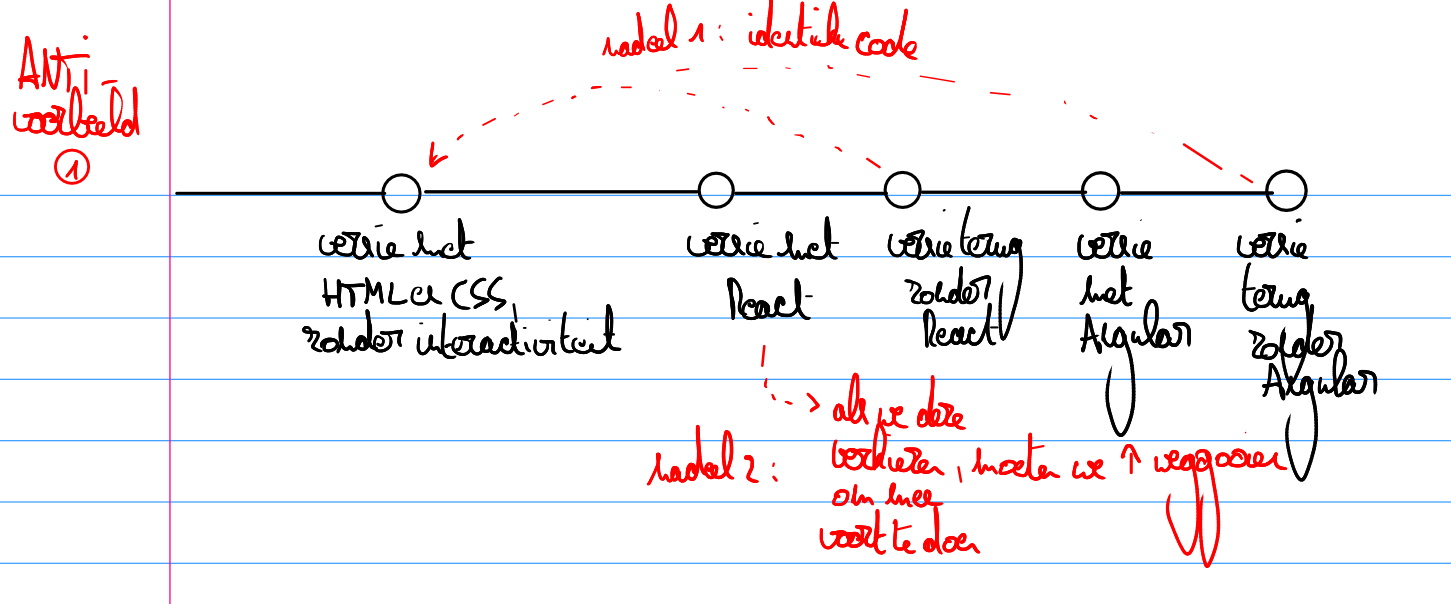 nadeel 1: identieke code
ANTI-
voorbeeld
1
versie met
HTML en CSS,
zonder interactiviteit
versie met
React
versie terug
zonder
React
versie
met
Angular
versie
terug
zonder
Angular
nadeel 2:
als we deze
verkiezen, moeten we ↑ weggooien
om mee
voort te doen